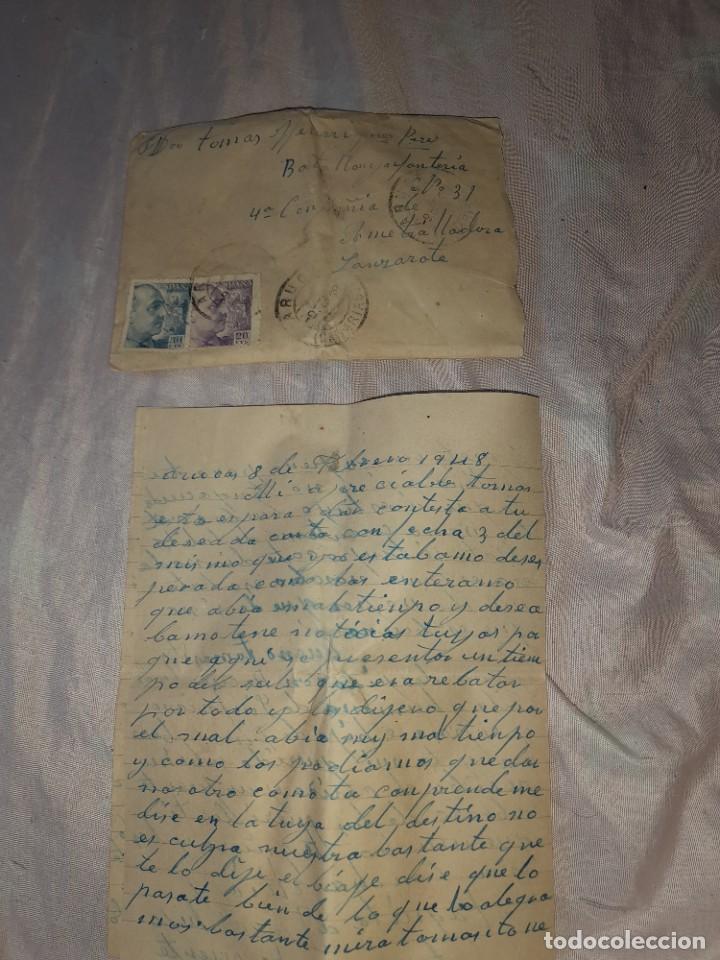 Don tomas
Batallon infanteria
nº 31
4ª Compañia de
Ametralladora
Lanzarote
ARUC
20
arucas 8 de Febrero 1948
Mi apreciable tomas
esta es para contesta a tu
deseada carta con fecha 3 del
mismo que ya estabamo deses
perada como los enteramo
que abia mal tienpo y desea
bamo tene noticias tuyas pa
que aqui se presento un tiem
po del sul que era rebatar
por todo y los dijeno que por
el mal abia muy mal tienpo
y como los podiamos quedar
nosotro como tu comprende me
dise en la tuya del destino no
es culpa nuestra bastante que
te lo dije el biaje dise que lo
pasate bien de lo que los alegra
mos bastante mira tomasito ne
todocoleccion